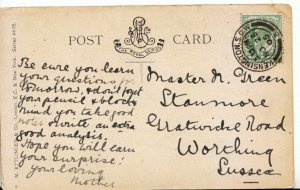 POST CARD
Be sure you learn
your questions for
tomorrow, & don't forget
your pencil & block
mind you take good
notes & write an extra
good analysis.
Hope you will earn
your surprise!
Your loving
Mother
Master N. Green
Stanmore
Gratwicke Road
Worthing
Sussex